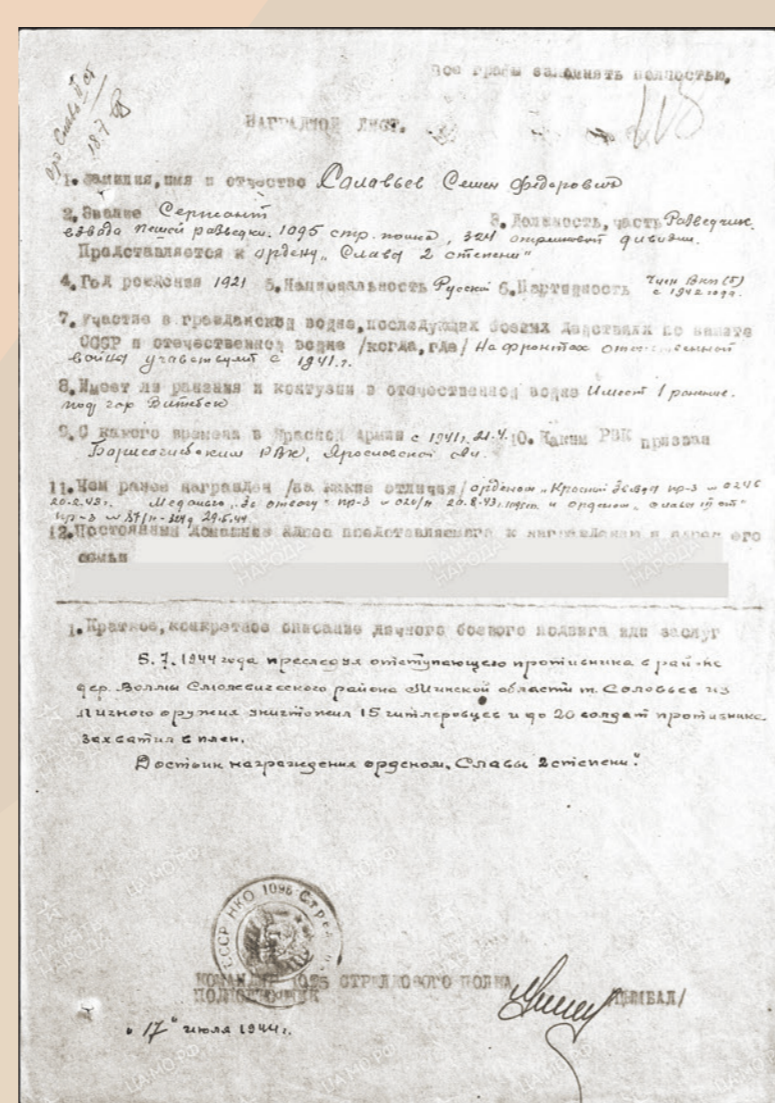 Все графы заполнять полностью.
орд. Слава II ст
18.7
НАГРАДНОЙ ЛИСТ.
1. Фамилия, имя и отчество Соловьев Семен Федорович
2. Звание Сержант 3. Должность, часть Разведчик
взвода пешей разведки. 1095 стр. полка, 324 стрелковой дивизии.
Представляется к ордену „Слава 2 степени"
4. Год рождения 1921 5. Национальность Русский 6. Партийность Член ВКП(б)
с 1942 года.
7. Участие в гражданской войне, последующих боевых действиях по защите
СССР и отечественной войне /когда, где/ На фронтах отечественной
войны участвует с 1941 г.
8. Имеет ли ранения и контузии в отечественной войне Имеет 1 ранение.
под гор Витебск
9. С какого времени в Красной Армии с 1941 г. 10. Каким РВК призван
Борисоглебским РВК, Ярославской обл.
11. Чем ранее награжден /за какие отличия/ орденом „Красной Звезда пр-з №
Медалью „За отвагу" пр-з № 020/н 20.8.43 и орденом „Слава III ст"
пр-з № 87/н 29.5.44
12. Постоянный домашний адрес представляемого к награждению и адрес его
семьи
1. Краткое, конкретное описание личного боевого подвига или заслуг
5.7.1944 года преследуя отступающего противника в районе
дер. Волмы Смолевичесского района Минской области т. Соловьев из
личного оружия уничтожил 15 гитлеровцев и до 20 солдат противника
захватил в плен.
Достоин награждения орденом „Славы 2 степени".
СССР НКО 1095 Стрел
КОМАНДИР 1095 СТРЕЛКОВОГО ПОЛКА
ПОДПОЛКОВНИК /ЦЫМБАЛ/
„17" июля 1944 г.
ПАМЯТЬ НАРОДА
ЦАМО.РФ